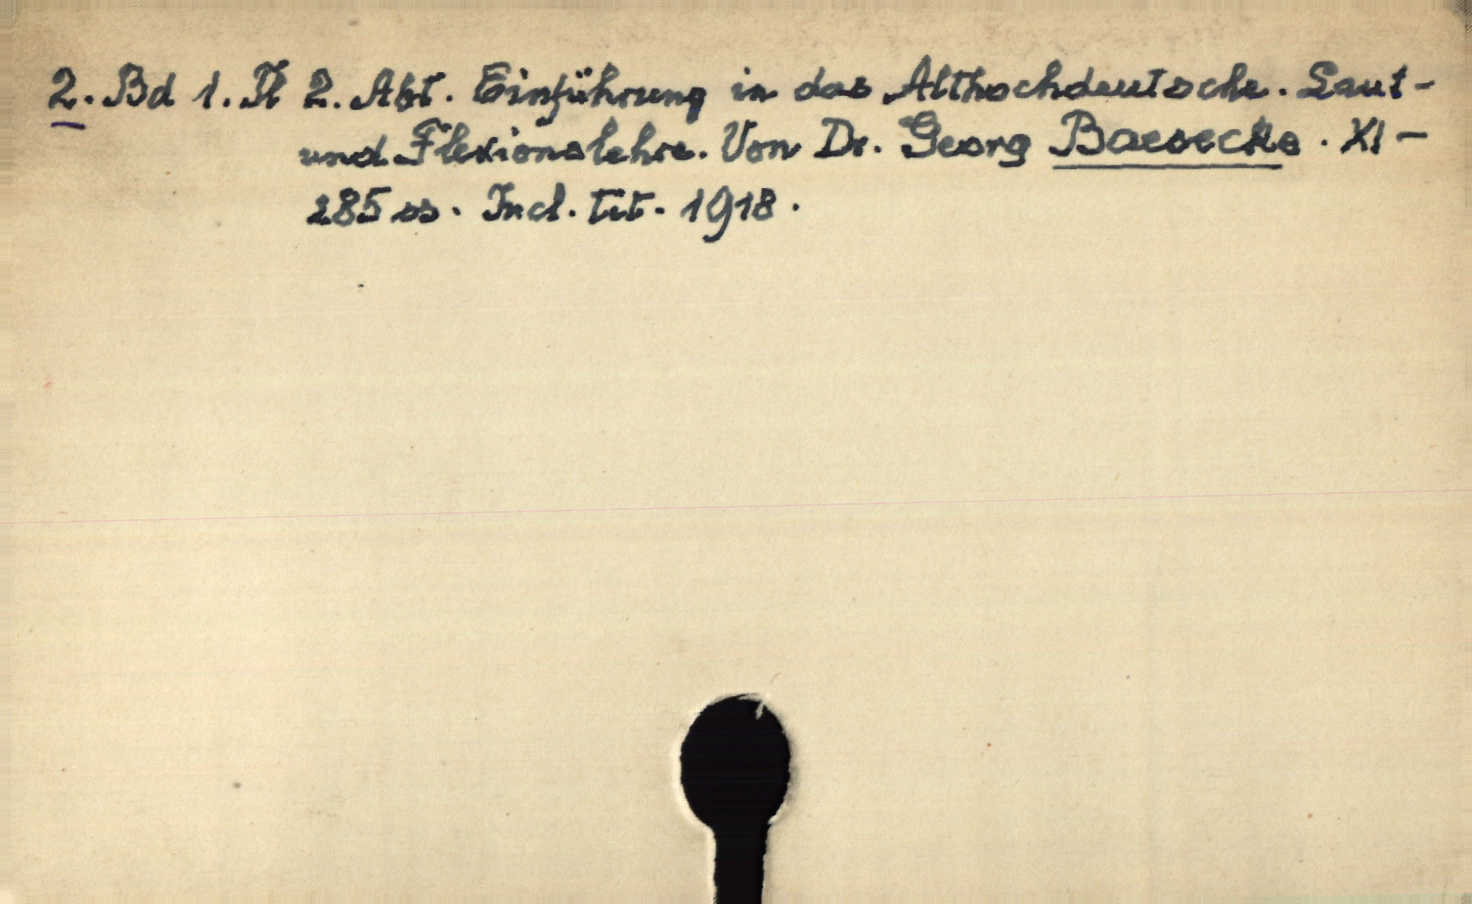 2. Bd 1. Tl 2. Abt. Einführung in das Althochdeutsche. Laut-
und Flexionslehre. Von Dr. Georg Baesecke. XI-
285 ss. Incl. tit. 1918.